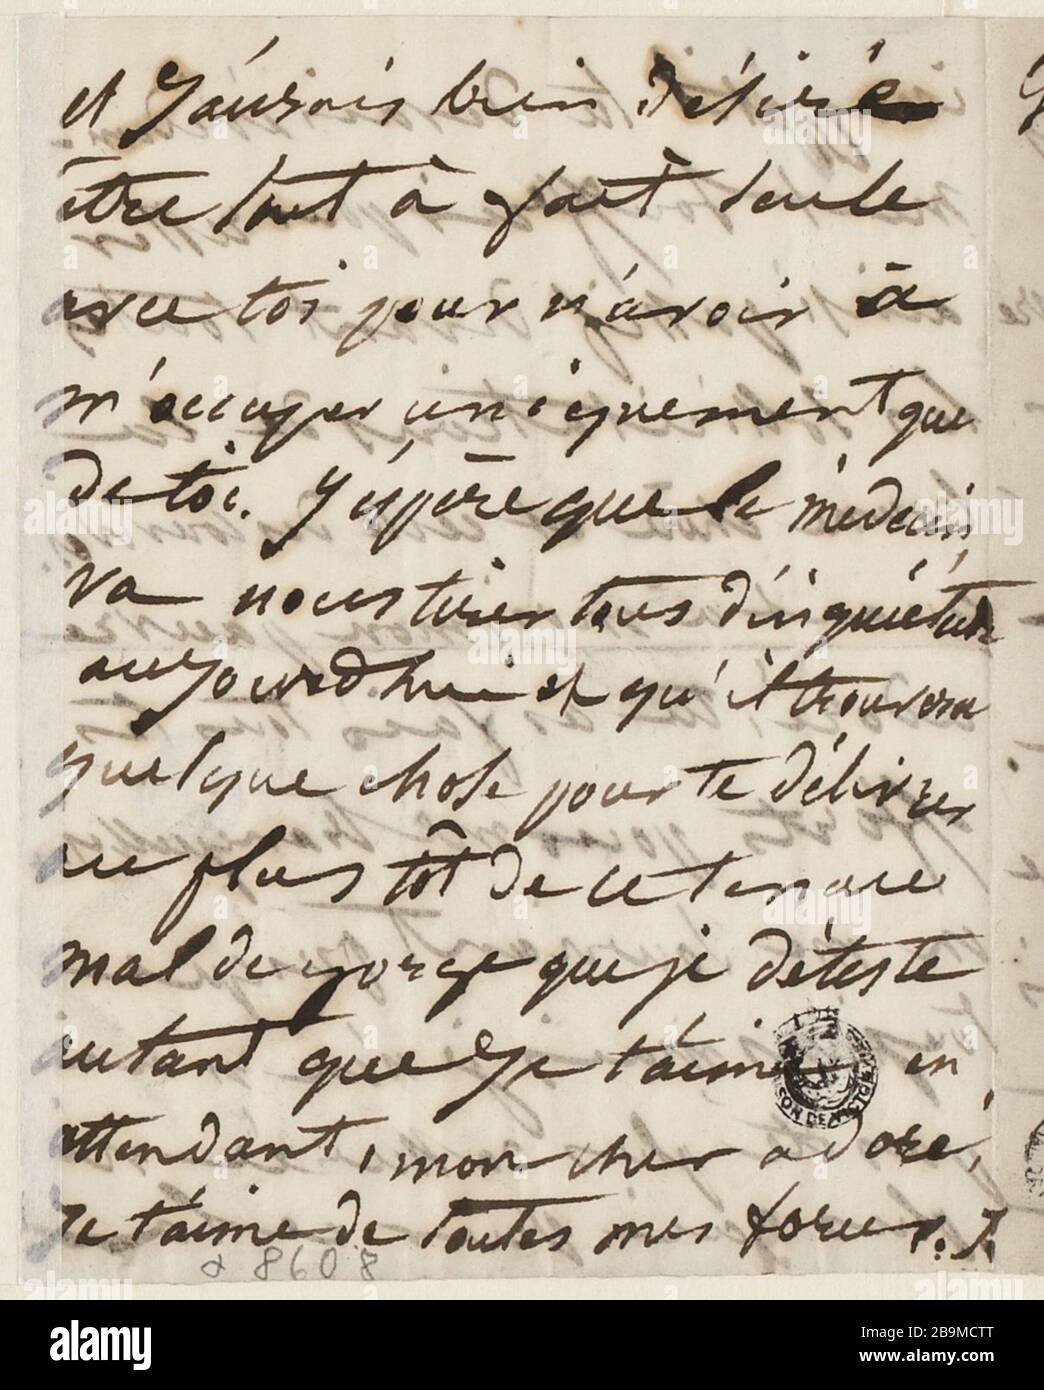 et J'aurais bien désiré
être tout à fait seule
avec toi pour n'avoir à
m'occuper uniquement que
de toi. J'espère que le médecin
va nous tirer tous d'inquiétude
aujourd'hui et qu'il trouvera
quelque chose pour te délivrer
au plus tôt de ce tenace
mal de gorge que je déteste
autant que Je t'aime en
attendant, mon cher adoré,
Je t'aime de toutes mes forces. J.
α 8608
alamy
Image ID: 2B9MCTT
www.alamy.com